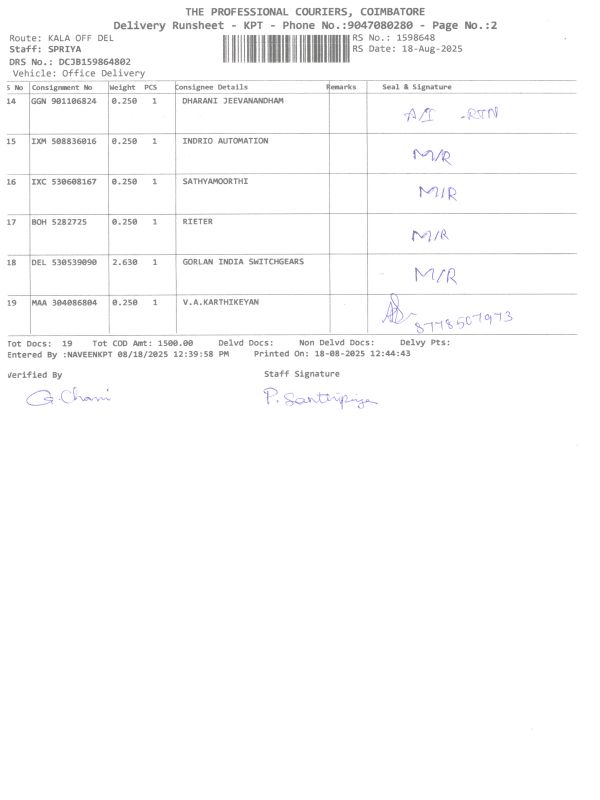 THE PROFESSIONAL COURIERS, COIMBATORE
Delivery Runsheet - KPT - Phone No.:9047080280 - Page No.:2
Route: KALA OFF DEL RS No.: 1598648
Staff: SPRIYA RS Date: 18-Aug-2025
DRS No.: DCJB159864802
Vehicle: Office Delivery
S No Consignment No Weight PCS Consignee Details Remarks Seal & Signature
14 GGN 901106824 0.250 1 DHARANI JEEVANANDHAM A/I -RTN
15 IXM 508836016 0.250 1 INDRIO AUTOMATION M/R
16 IXC 530608167 0.250 1 SATHYAMOORTHI M/R
17 BOH 5282725 0.250 1 RIETER M/R
18 DEL 530539090 2.630 1 GORLAN INDIA SWITCHGEARS M/R
19 MAA 304086804 0.250 1 V.A.KARTHIKEYAN 8778507973
Tot Docs: 19 Tot COD Amt: 1500.00 Delvd Docs: Non Delvd Docs: Delvy Pts:
Entered By :NAVEENKPT 08/18/2025 12:39:58 PM Printed On: 18-08-2025 12:44:43
Verified By Staff Signature
G.Chami P.